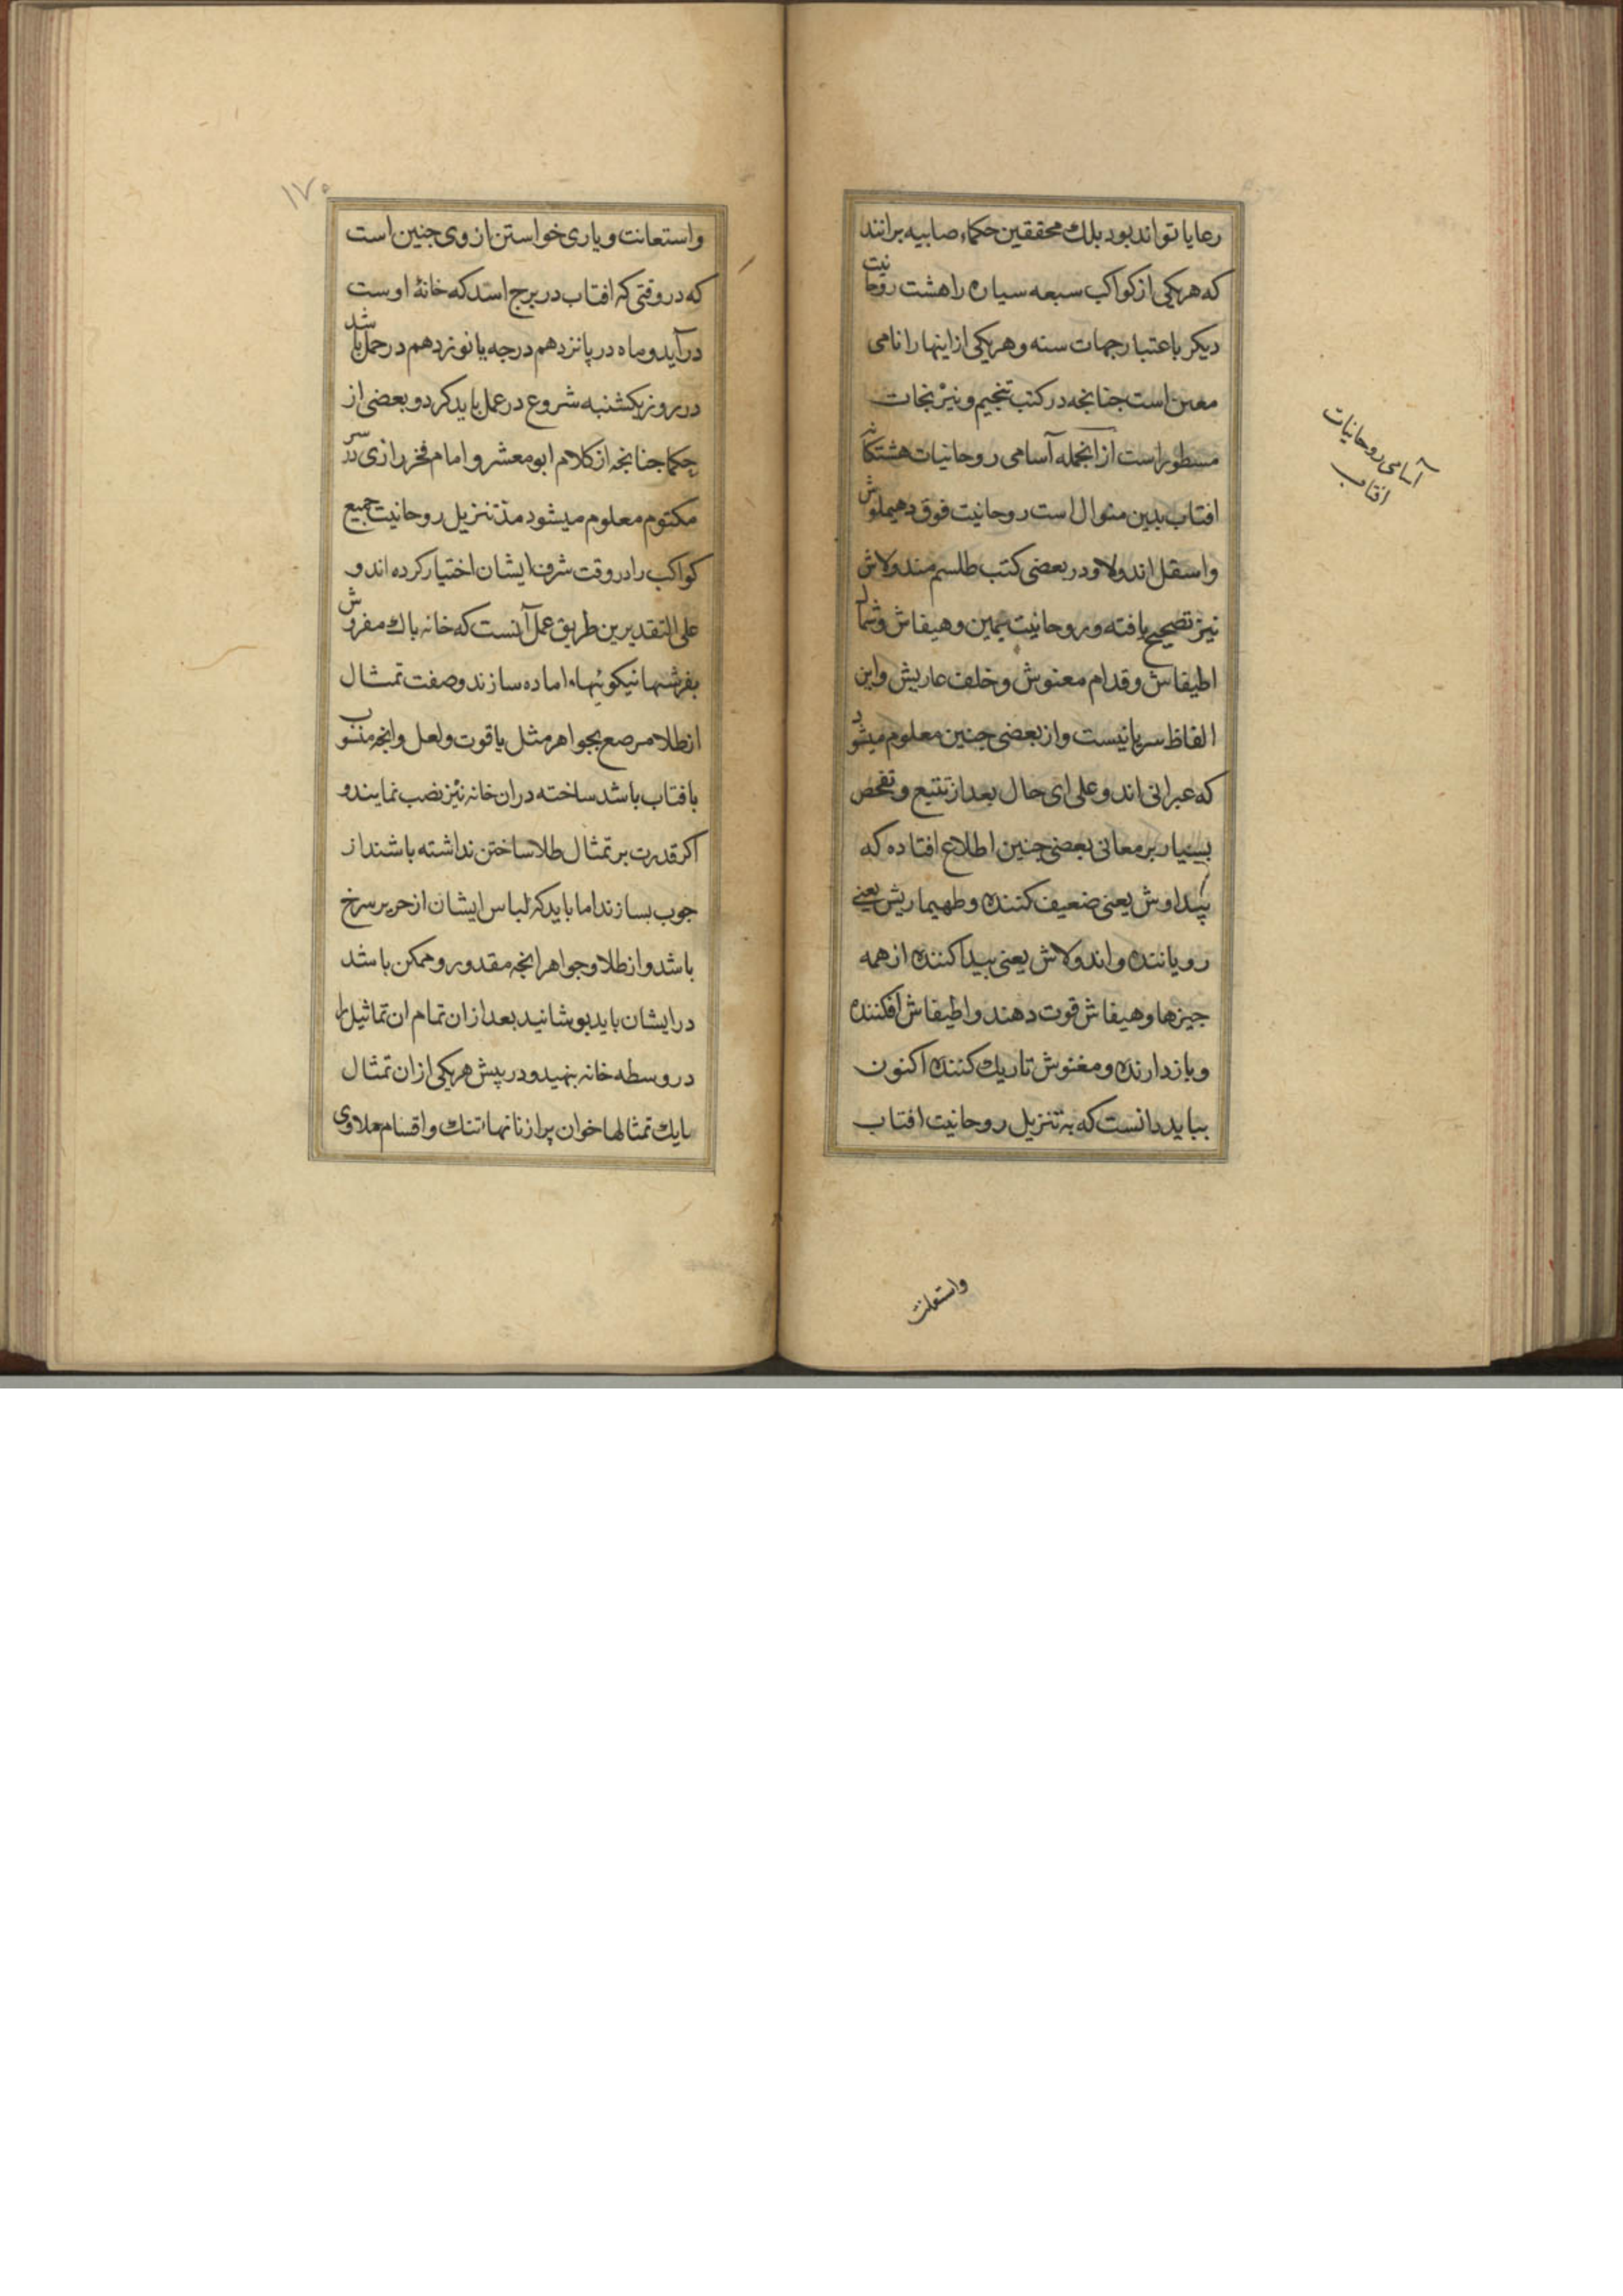 رعایا تواند بود بلك محققین حکماء صابیه برانند
که هریکی از کواکب سبعه سیاره را هشت روحانیت
دیکر باعتبار جهات سته و هریکی از اینها را نامی
معین است جنانجه در کتب تنجیم و نیرنجات
مسطور است از انجمله آسامی روحانیات هشتکانه
افتاب بدین منوال است روحانیت فوق دهیملوش
واسفل اندولا و در بعضی کتب طلسم مندولاش
نیز تصحیح یافته و روحانیت یمین وهیفاش و شمال
اطیفاش و قدام مغنوش و خلف عاریش و این
الفاظ سریانیست و از بعضی جنین معلوم میشود
که عبرانی اند و علی ای حال بعد از تتبع و تفحص
بسیار بر معانی بعضی جنین اطلاع افتاده که
یعنی ضعیف کننده و طهیماریش یعنی
رویاننده و اندولاش یعنی بیدا کننده از همه
جیزها وهیفاش قوت دهند و اطیفاش افکننده
و بازدارنده و مغنوش تاریك کننده اکنون
بباید دانست که به تنزیل روحانیت افتاب
آسامی روحانیات
افتاب
واستعانت
۱۷۰
واستعانت و یاری خواستن از وی جنین است
که در وقتی که افتاب در برج اسد که خانهٔ اوست
درآید و ماه در پانزدهم درجه یا نوزدهم در حمل باشد
در روز یکشنبه شروع در عمل باید کرد و بعضی از
حکما جنانجه از کلام ابومعشر و امام فخر رازی در سر
مکتوم معلوم میشود مذ تنزیل روحانیت جمیع
کواکب را در وقت شرف ایشان اختیار کرده اند و
علی التقدیرین طریق عمل آنست که خانه باك مفروش
بفرشها نیکو اماده سازند و صفت تمثال
از طلا مرصع بجواهر مثل یاقوت و لعل و انجه منسوب
بافتاب باشد ساخته در ان خانه نیز نصب نمایند و
اکر قدرت بر تمثال طلا ساختن نداشته باشند از
جوب بسازند اما باید که لباس ایشان از حریر سرخ
باشد و از طلا و جواهر انجه مقدور و ممکن باشد
در ایشان باید بوشانید بعد از ان تمام ان تماثیل را
در وسطه خانه بنهید و در پیش هریکی از ان تمثال
بایك تمثالها خوان پر از نانهاء تنك و اقسام حلاوی